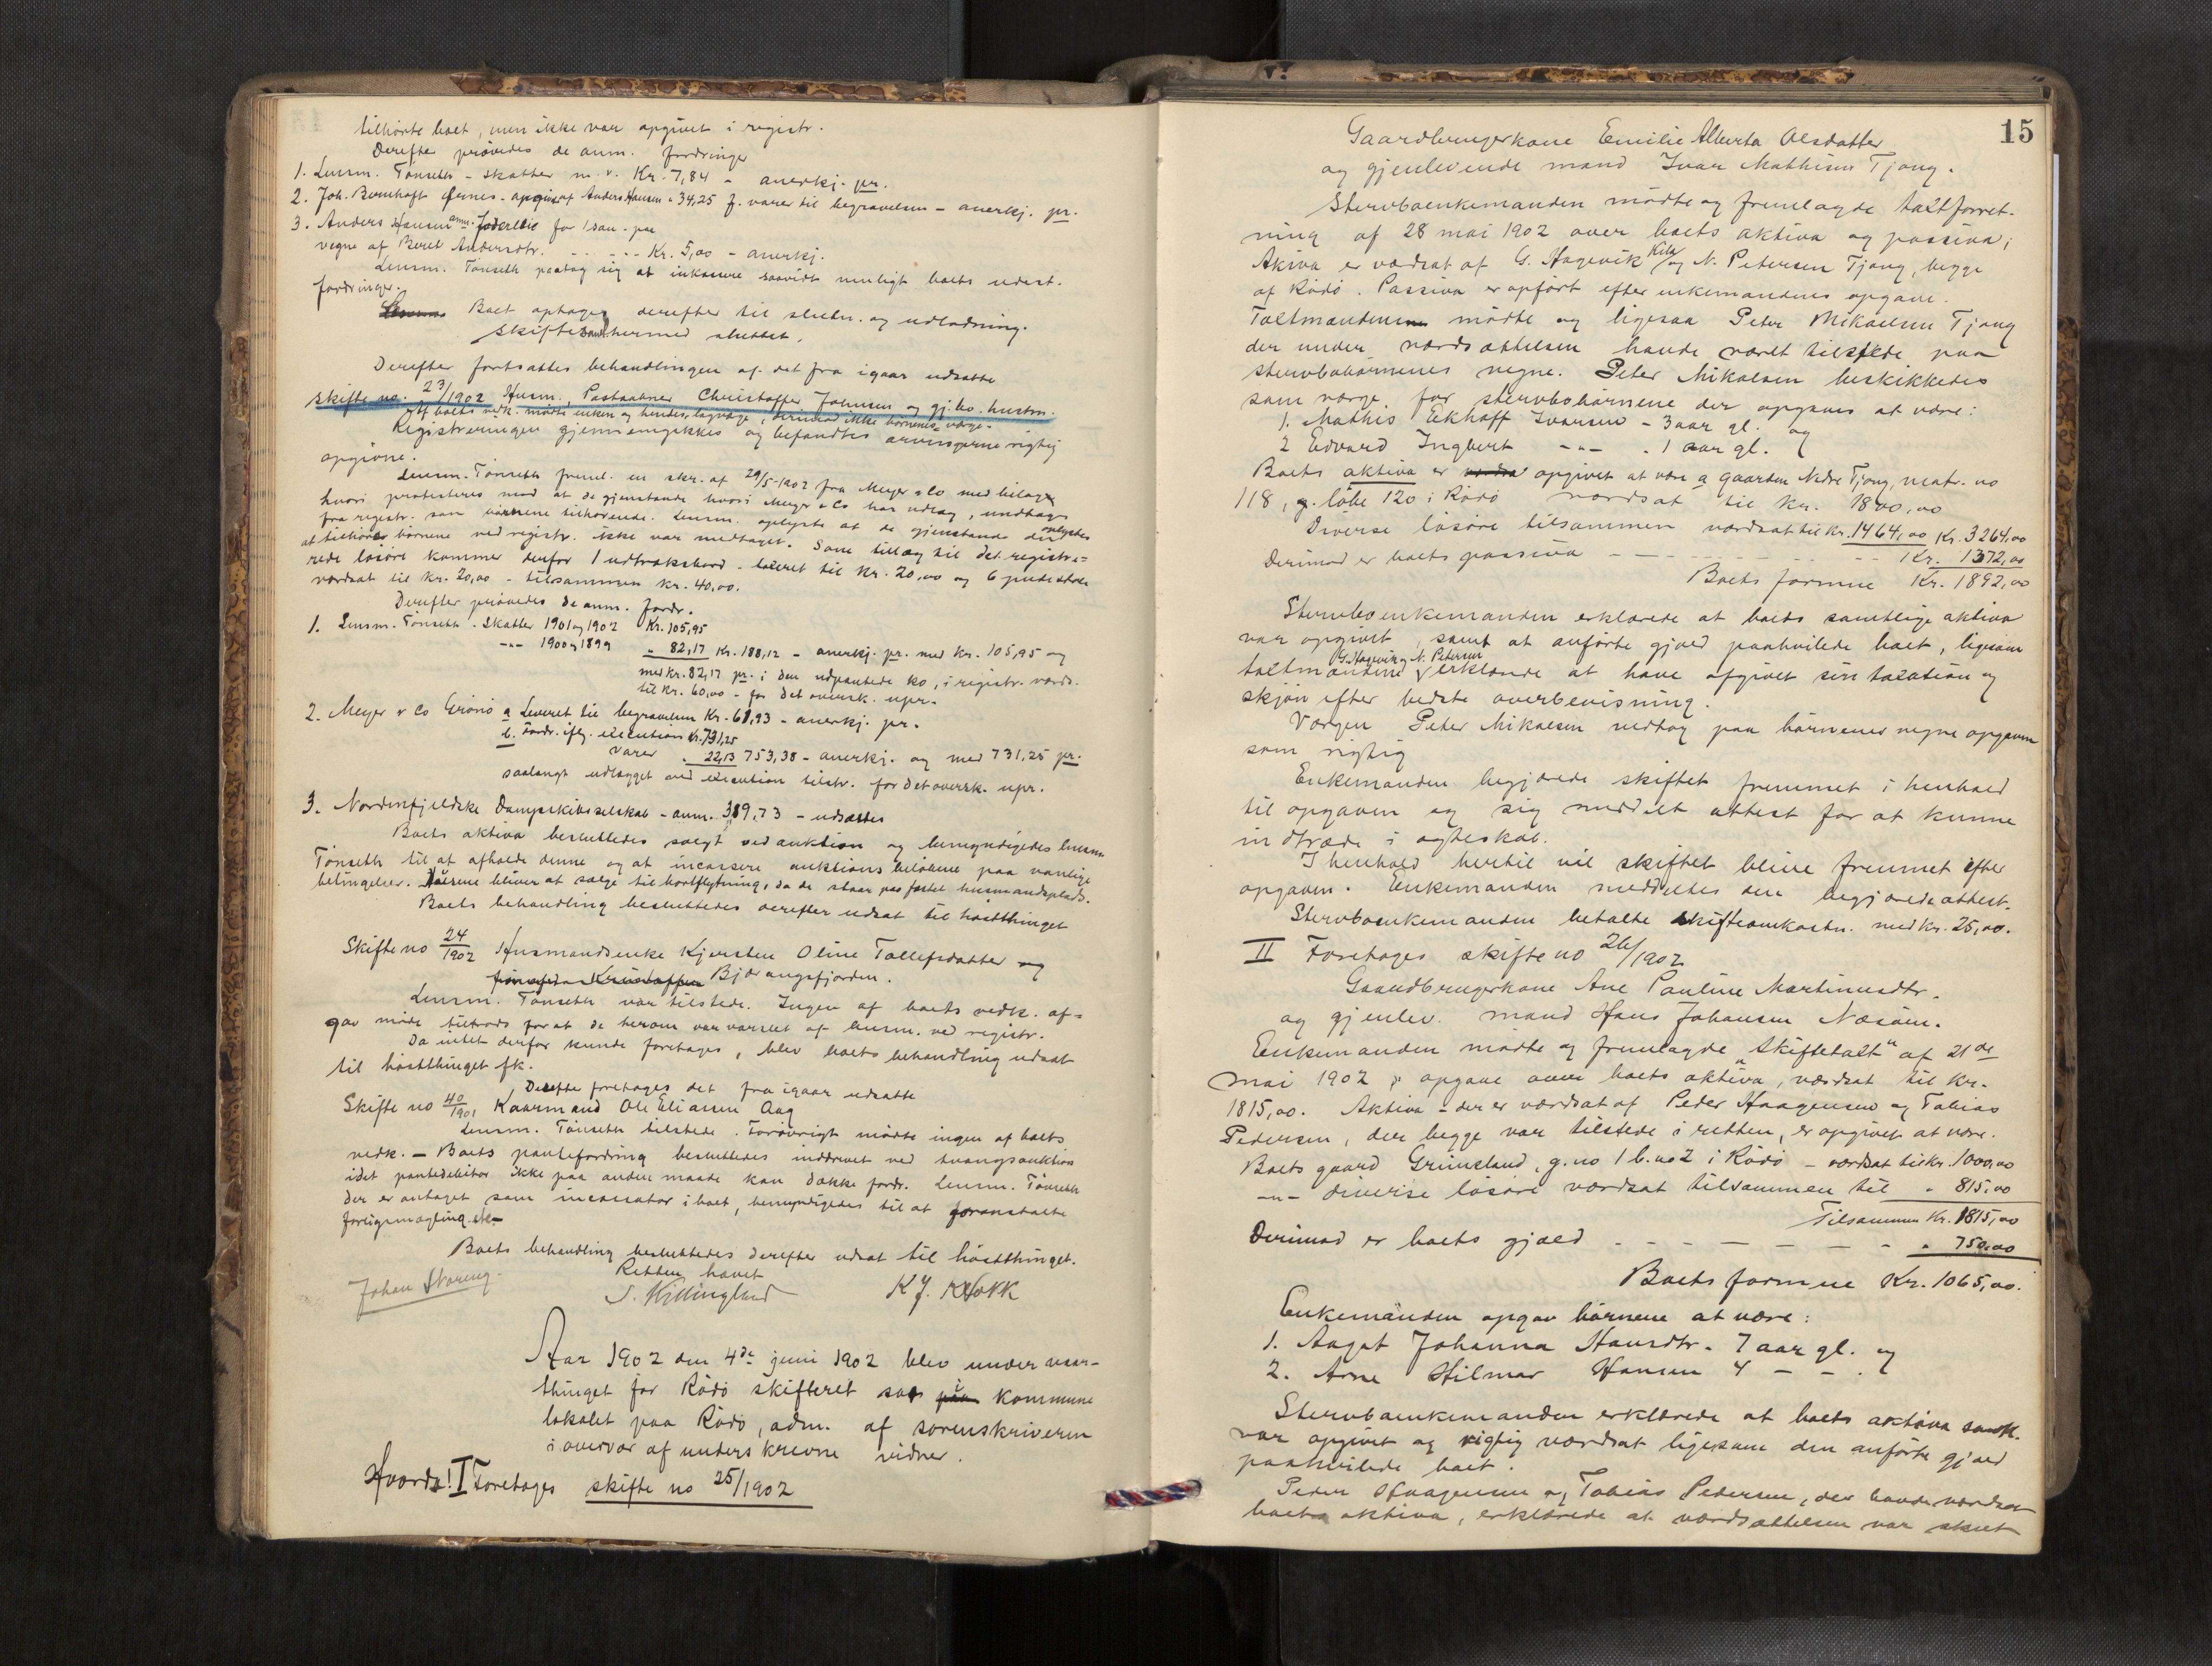 tilhørte boet, men ikke var opgivet i registr.
Derefter prøvedes de anm. fordringer
1. Lensm. Tønseth - skatter m. v. Kr. 7,84 - anerkj. pr.
2. Joh. Bernhoft Ørnes - opgivet af Anders Hansen - 34,25 f. varer til begravelsen - anerkj. pr.
3. Anders Hansen anm. for 1 sau - paa
vegne af Beret Andersdtr. - - - - - Kr. 5,00 - anerkj.
Lensm. Tønseth paatog sig at inkassere saavidt muligt boets udest.
fordringer.
Boet optages derefter til slutn. og udlodning.
Skiftesaml. hermed sluttet.
Derefter fortsattes behandlingen af det fra igaar udsatte
skifte no. 23/1902 Husm., Postaabner Christoffer Johnsen og gj.bo. hustru.
Af boets vedk. mødte enken og hendes lagværge, derimod ikke børnenes værge.
Registreringen gjennemgikkes og befandtes arvingerne rigtig
opgivne.
Lensm. Tønseth freml. en skr. af 29/5-1902 fra Meyer & Co med bilage
hvori protesteres mod at de gjenstande hvori Meyer & Co har udlæg, undtages
fra registr. som børnene tilhørende. Lensm. oplyste at de gjenstande der oplystes
at tilhøre børnene ved registr. ikke var medtaget. Som tillæg til det registre=
rede løsøre kommer derfor 1 udtræksbord - taxeret til kr. 20,00 og 6 pudestole
værdsat til kr. 20,00 - tilsammen kr. 40,00.
Derefter prøvedes de anm. fordr.
1. Lensm. Tønseth - Skatter 1901 og 1902 Kr. 105,95
-"- 1900 og 1899 " 82,17 Kr. 188,12 - anerkj. pr. med kr. 105,95 og
med kr. 82,17 pr. i den udpantede ko, i registr. værds.
til kr. 60,00 - for det oversk. upr.
2. Meyer & Co Grønø a Leveret til begravelsen Kr. 61,93 - anerkj. pr.
b. Fordr. iflg. execution Kr. 731,25
varer " 22,13 753,38 - anerkj. og med 731,25 pr.
saalangt udlægget ved execution tilstr. for det oversk. upr.
3. Nordenfjeldske Dampskibsselskab - anm. 389,73 - udsættes
Boets aktiva besluttedes solgt ved auktion og bemyndigedes lensm
Tønseth til at afholde denne og at incassere auktionsbeløbene paa vanlige
betingelser. Husene bliver at sælge til bortflytning, da de staar paa fæstet husmandsplads.
Boets behandling besluttedes derefter udsat til høstthinget
Skifte no 24/1902 Husmandsenke Kjersten Oline Tollefsdatter og
Bjærangsfjorden.
Lensm. Tønseth var tilstede. Ingen af boets vedk. af=
gav møde tiltrods for at de herom var varslet af lensm. ved registr.
Da intet derfor kunde foretages, blev boets behandling udsat
til høstthinget fk.
Derefter foretages det fra igaar udsatte
Skifte no 40/1901 Kaarmand Ole Eliasen Aag
Lensm. Tønseth tilstede. Forøvrigt mødte ingen af boets
vedk. - Boets pantefordring besluttedes inddrevet ved tvangsauktion
idet pantedebitor ikke paa anden maade kan dække fordr. Lensm. Tønseth
der er antaget som incassator i boet, bemyndigedes til at foranstalte
forligsmægling etc-
Boets behandling besluttedes derefter udsat til høstthinget.
Retten hævet
Johan Storeng. S. Killingland K J. Krokk
Aar 1902 den 4de juni 1902 blev under vaar-
thinget for Rødø skifteret sat i kommune
lokalet paa Rødø, adm. af sorenskriveren
i overvær af underskrevne vidner.
Hvorda! I Foretages skifte no 25/1902
15
Gaardbrugerkone Emilie Alberta Olsdatter
og gjenlevende mand Ivar Mathisen Tjong.
Stervboenkemanden mødte og fremlagde taxtforret-
ning af 28 mai 1902 over boets aktiva og passiva;
Akiva er værdsat af G. Hagevik Kila og N. Petersen Tjong, begge
af Rødø. Passiva er opført efter enkemandens opgave.
Taxtmændene mødte og ligesaa Peter Mikaelsen Tjong
der under værdsættelsen havde været tilstede paa
stervbobørnenes vegne. Peter Mikalsen beskikkedes
som værge for stervbobørnene der opgaves at være:
1. Mathis Ekhoff Ivarsen - 3 aar gl. og
2 Edvard Ingbert -"- . 1 aar gl.
Boets aktiva er opgivet at være a gaarden Nedre Tjong, matr. no
118, g. løbe 120 i Rødø værdsat til kr. 1800,00
Diverse løsøre tilsammen værdsat til kr. 1464,00 Kr. 3264,00
Derimod er boets passiva - - - - - - Kr. 1372,00
Boets formue Kr. 1892,00
Stervboenkemanden erklærede at boets samtlige aktiva
var opgivet, samt at anførte gjæld paahvilede boet, ligesom
taxtmændene G. Hagevik og N. Petersen erklærede at have afgivet sin taxation og
skjøn efter bedste overbevisning.
Værgen Peter Mikalsen vedtog paa børnenes vegne opgaven
som rigtig
Enkemanden begjærede skiftet fremmet i henhold
til opgaven og sig meddelt attest for at kunne
indtræde i ægteskab.
I henhold hertil vil skiftet blive fremmet efter
opgaven. Enkemanden meddeltes den begjærede attest.
Stervboenkemanden betalte skifteomkostn. med kr. 25,00.
II Foretages skifte no 26/1902
Gaardbrugerkone Ane Pauline Martinusdtr.
og gjenlev. mand Hans Johansen Næsøen.
Enkemanden mødte og fremlagde "Skiftetaxt" af 21de
mai 1902 opgave over boets aktiva, værdsat til kr.
1815,00. Aktiva - der er værdsat af Peder Haagensen og Tobias
Pedersen, der begge var tilstede i retten, er opgivet at være.
Boets gaard Grimsland, g.no 1 b.no 2 i Rødø - værdsat til kr. 1000,00
-"- diverse løsøre værdsat tilsammen til " 815,00
Tilsammen Kr. 1815,00
Derimod er boets gjæld - - - - - - - - " 750,00
Boets formue Kr. 1065,00.
Enkemanden opgav børnene at være:
1. Aagot Johanna Hansdtr. 7 aar gl. og
2. Arne Hilmar Hansen 4 - - .
Stervboenkemanden erklærede at boets aktiva samtl.
var opgivet og rigtig værdsat ligesom den anførte gjæld
paahvilede boet.
Peder Haagensen og Tobias Pedersen, der havde værdsat
boets aktiva, erklærede at værdsættelsen var skeet